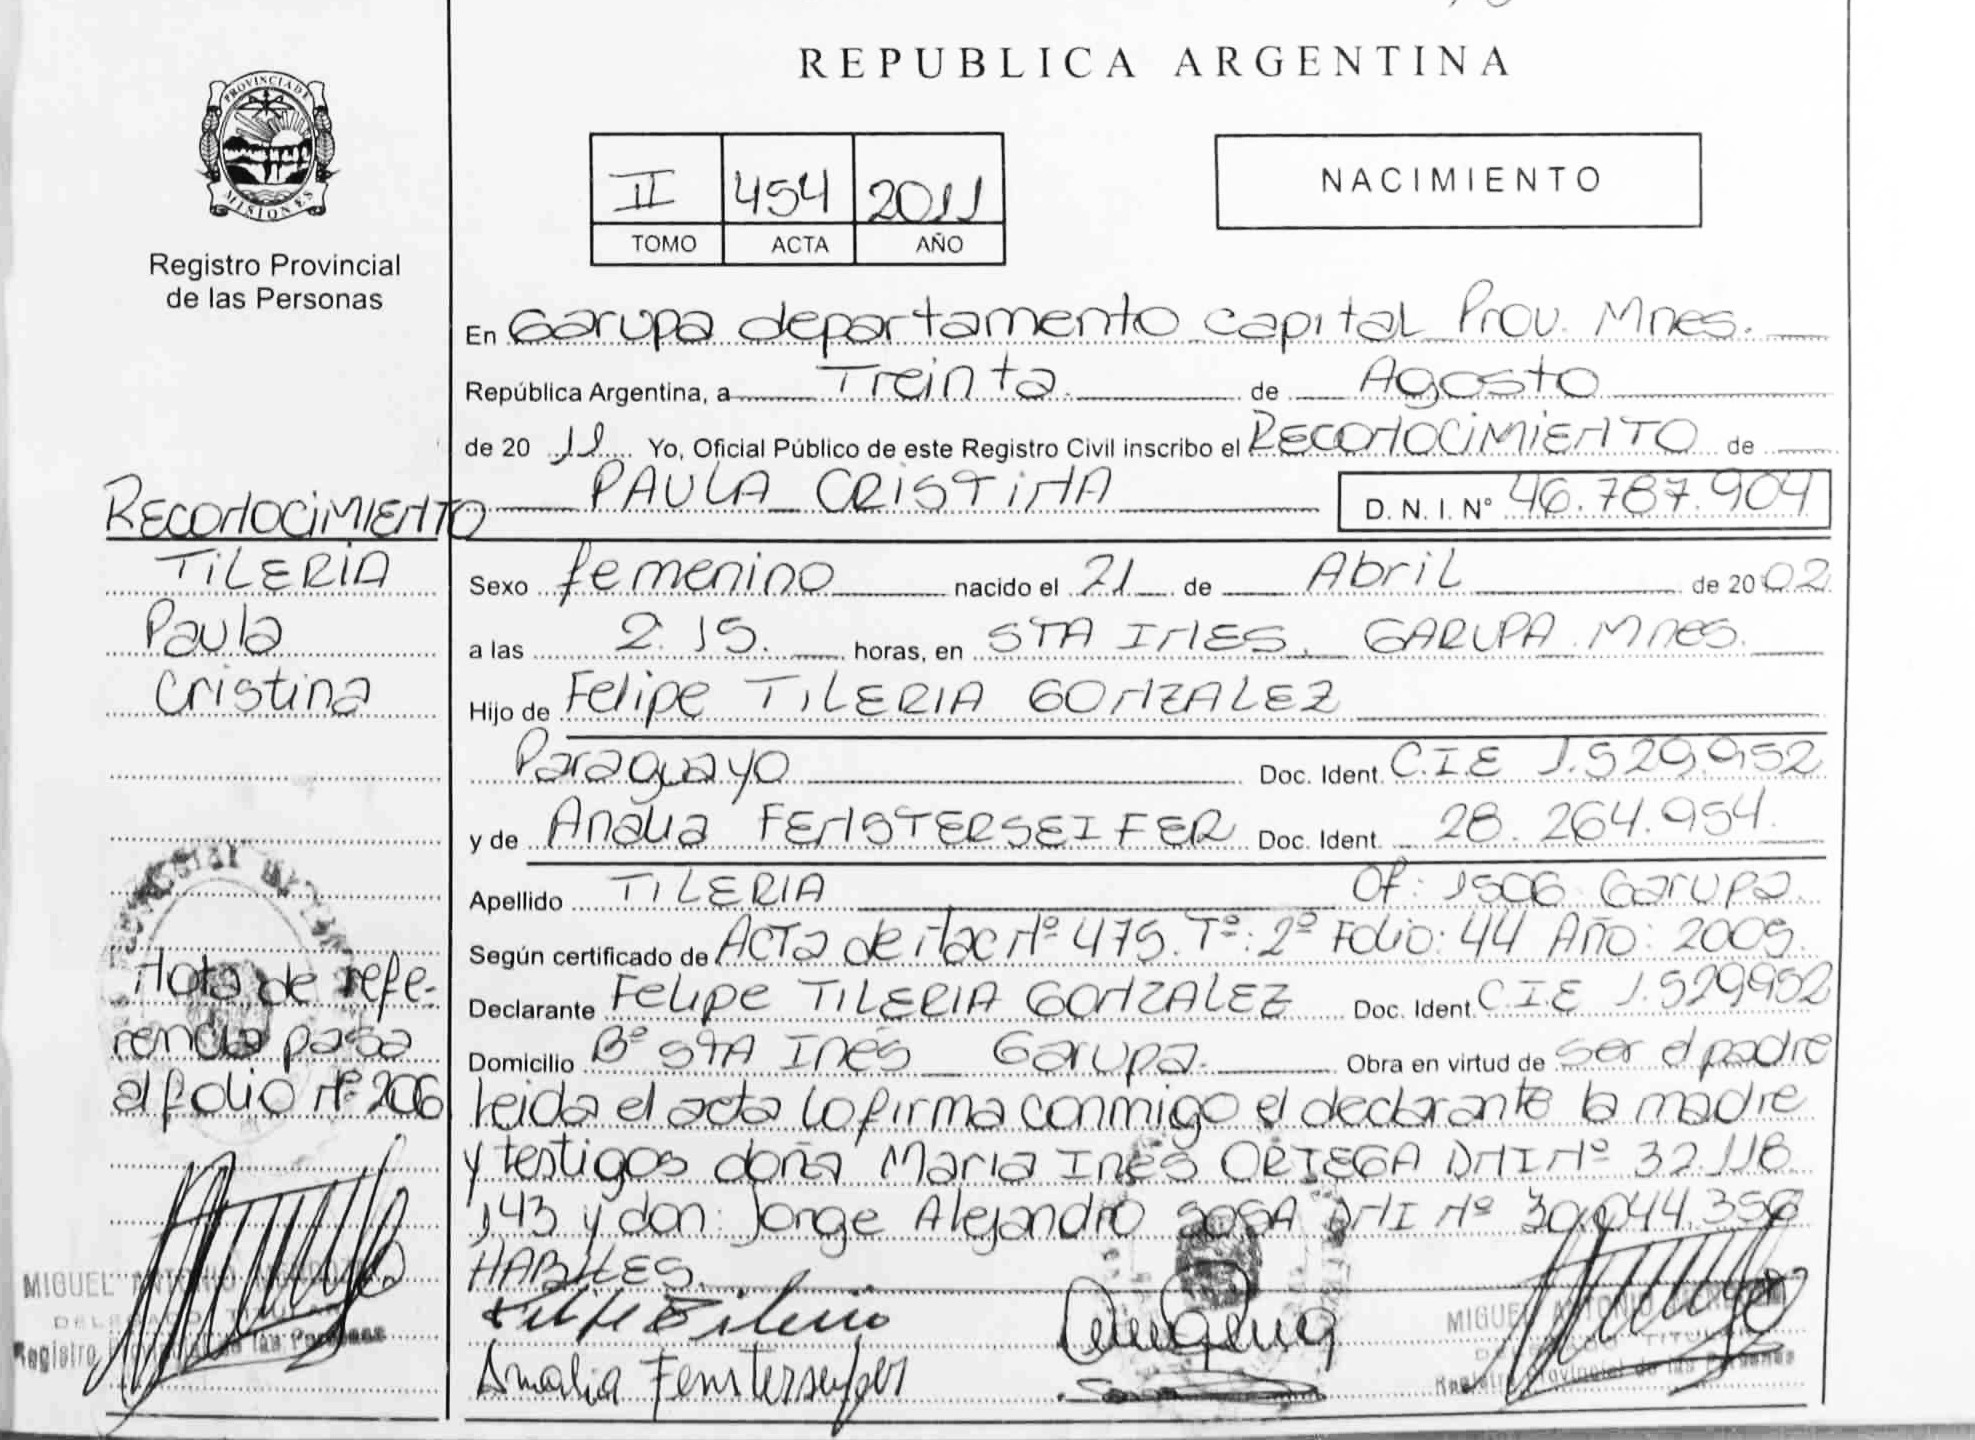 REPUBLICA ARGENTINA
PROVINCIA DE
MISIONES
Registro Provincial
de las Personas
II 454 2011
TOMO ACTA AÑO
NACIMIENTO
En Garupa departamento capital Prov. Mnes.
República Argentina, a Treinta de Agosto
de 20 11 Yo, Oficial Público de este Registro Civil inscribo el RECONOCIMIENTO de
PAULA CRISTINA D.N.I. N° 46.787.904
RECONOCIMIENTO
TILERIA
Paula
Cristina
Sexo femenino nacido el 21 de Abril de 2002
a las 2.15. horas, en STA INES. GARUPA. Mnes.
Hijo de Felipe TILERIA GONZALEZ
Paraguayo Doc. Ident. C.I.E 1.529.952
y de Analia FENSTERSEIFER Doc. Ident. 28.264.954.
Apellido TILERIA Of: 1506 Garupa.
Según certificado de Acta de Nac Nº 475. Tº: 2º Folio: 44 Año: 2005.
Declarante Felipe TILERIA GONZALEZ Doc. Ident. C.I.E 1.529952
Domicilio Bº STA Inés Garupa. Obra en virtud de ser el padre
leida el acta lo firma conmigo el declarante la madre
y testigos doña Maria Inés ORTEGA DNI Nº 32.118
,143 y don: Jorge Alejandro SOSA DNI Nº 30.044.358
HABILES.
Nota de refe-
rencia pasa
al folio Nº 206
Analia Fensterseifer
MIGUEL ANTONIO
DELEGADO TITULAR
Registro Provincial de las Personas
MIGUEL ANTONIO
DELEGADO TITULAR
Registro Provincial de las Personas